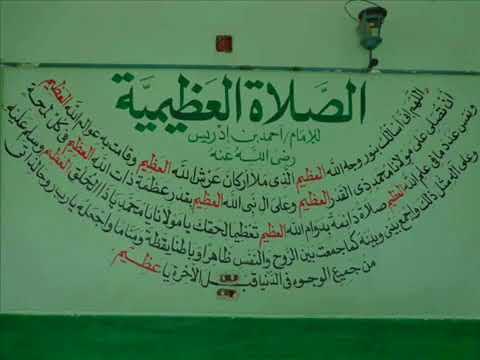 الصَّلاة العَظيميَّة
للإمام/ أحمد بن إدريس
رضى الله عنه
اللهم إنى أسألك بنور وجه الله العظيم الذى ملأ أركان عرش الله العظيم وقامت به عوالم الله العظيم
أن تصلى على مولانا محمد ذى القدر العظيم وعلى آل نبى الله العظيم بقدر عظمة ذات الله العظيم فى كل لمحة
ونفس عدد ما فى علم الله العظيم صلاة دائمة بدوام الله العظيم تعظيما لحقك يا مولانا يا محمد يا ذا الخلق العظيم وسلم عليه
وعلى آله مثل ذلك واجمع بينى وبينه كما جمعت بين الروح والنفس ظاهرا وباطنا يقظة ومناما واجعله يارب روحا لذاتى
من جميع الوجوه فى الدنيا قبل الآخرة يا عظيم